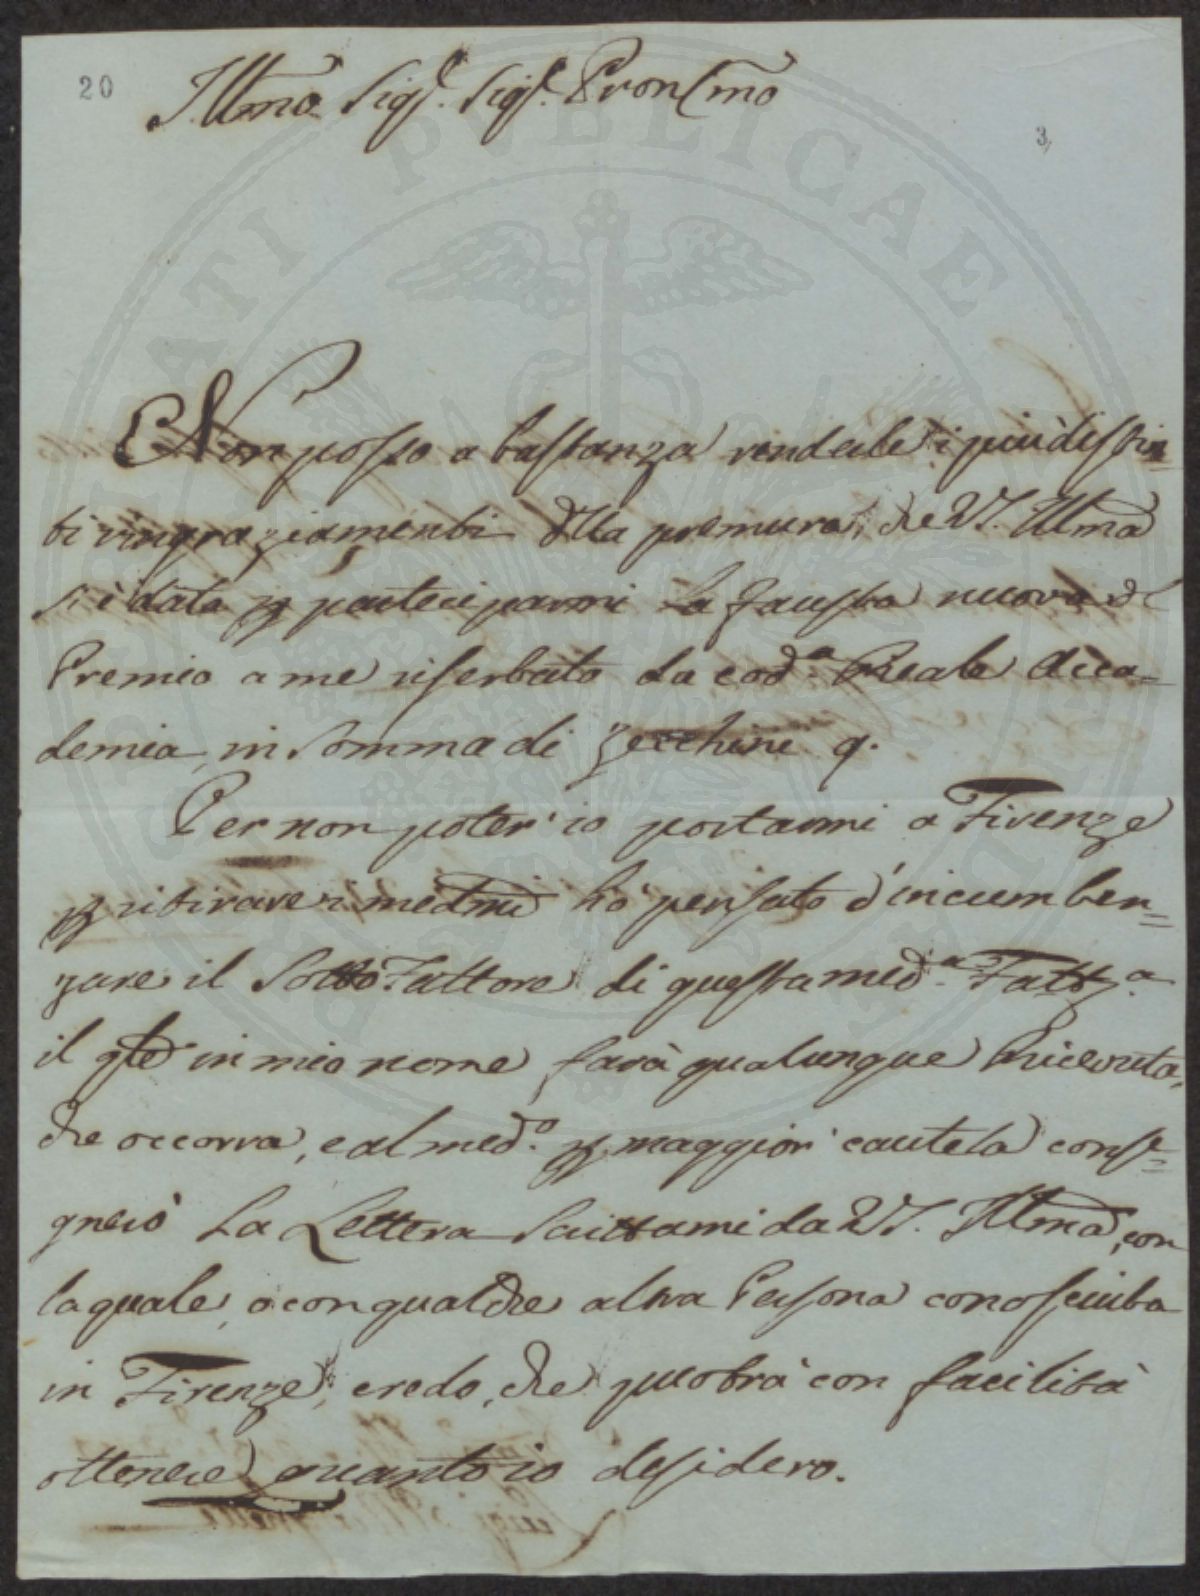 20
Illmo Sig.r Sig.r Pron Cmo
3,
Non posso a bastanza renderle i più distin=
ti ringraziamenti dlla premura, che V.S. Illma
si è data p parteciparmi La fausta nuova dl
Premio a me riserbato da cod.a Reale Acca=
demia, in Somma di Zecchini 9.
Per non poter io portarmi a Firenze
p ritirare i medmi hò pensato d'incumben=
zare il Sotto Fattore di questa med.a Fatt.a
il qle in mio nome farà qualunque Ricevuta,
che occorra, e al med.o p maggior cautela conse=
gnerò La Lettera Scrittami da V.S. Illma, con
la quale, o con qualche altra Persona conosciuta
in Firenze, credo, che potrà con facilità
ottenere quanto io desidero.